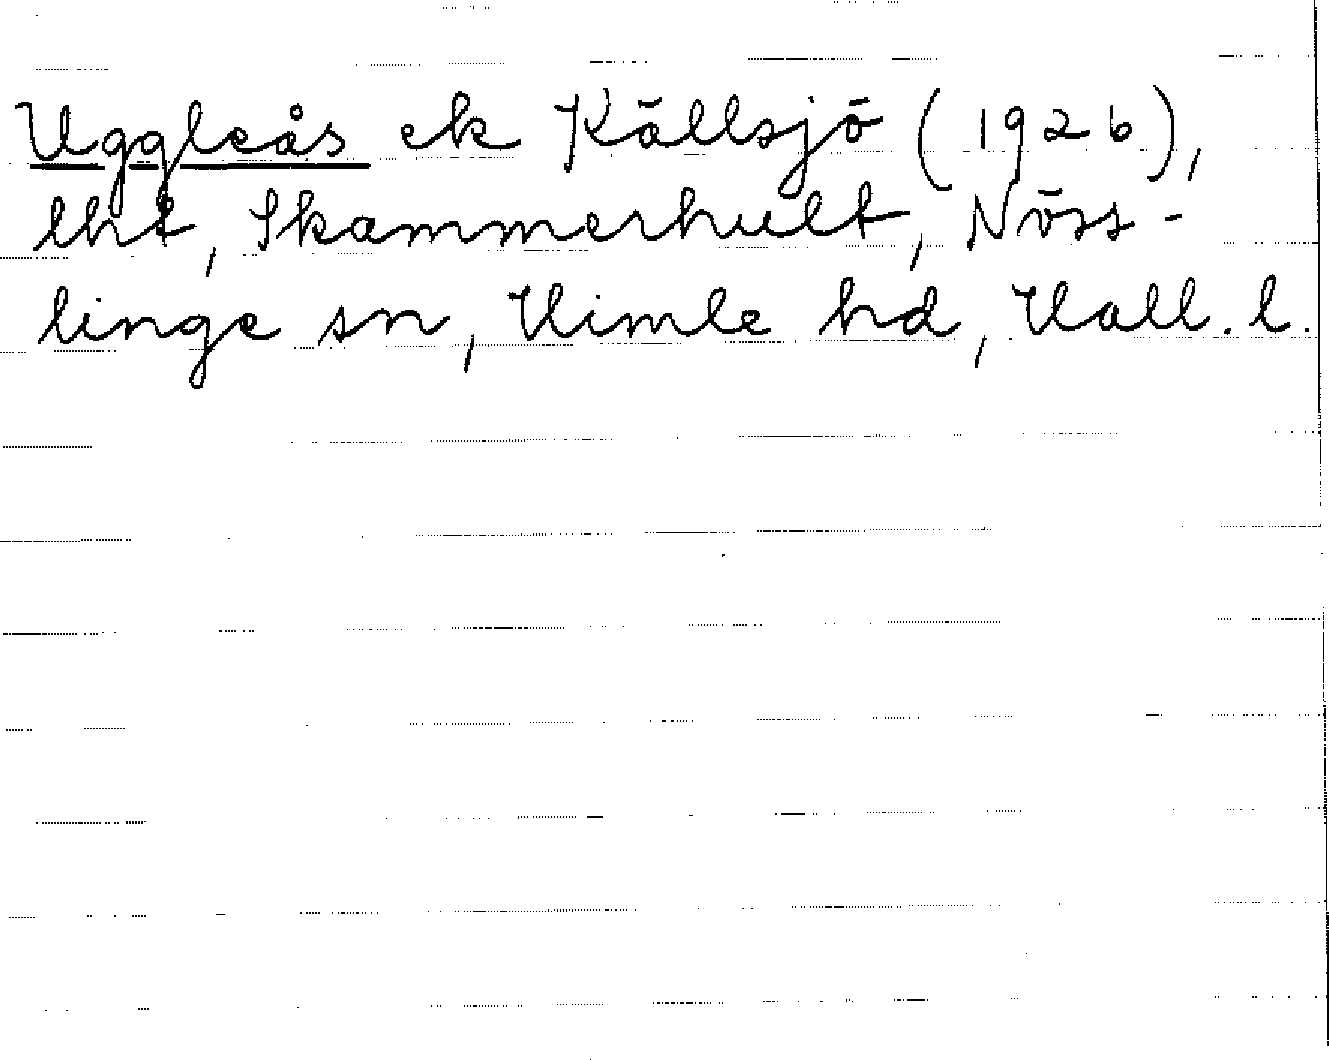 Uggleås ek Källsjö (1926),
lht, Skammerhult, Nöss-
linge sn, Himle hd, Hall. l.